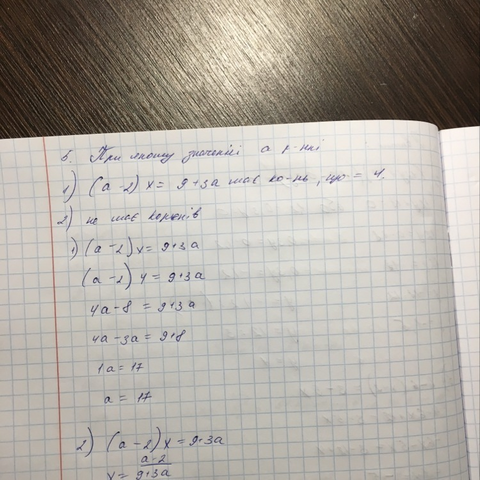 6. При якому значенні a р-ння
1) (a-2)x = 9+3a має ко-нь, що = 4.
2) не має коренів
1) (a-2)x = 9+3a
(a-2)4 = 9+3a
4a-8 = 9+3a
4a-3a = 9+8
1a = 17
a = 17
2) (a-2)x = 9+3a
a-2
x = 9+3a